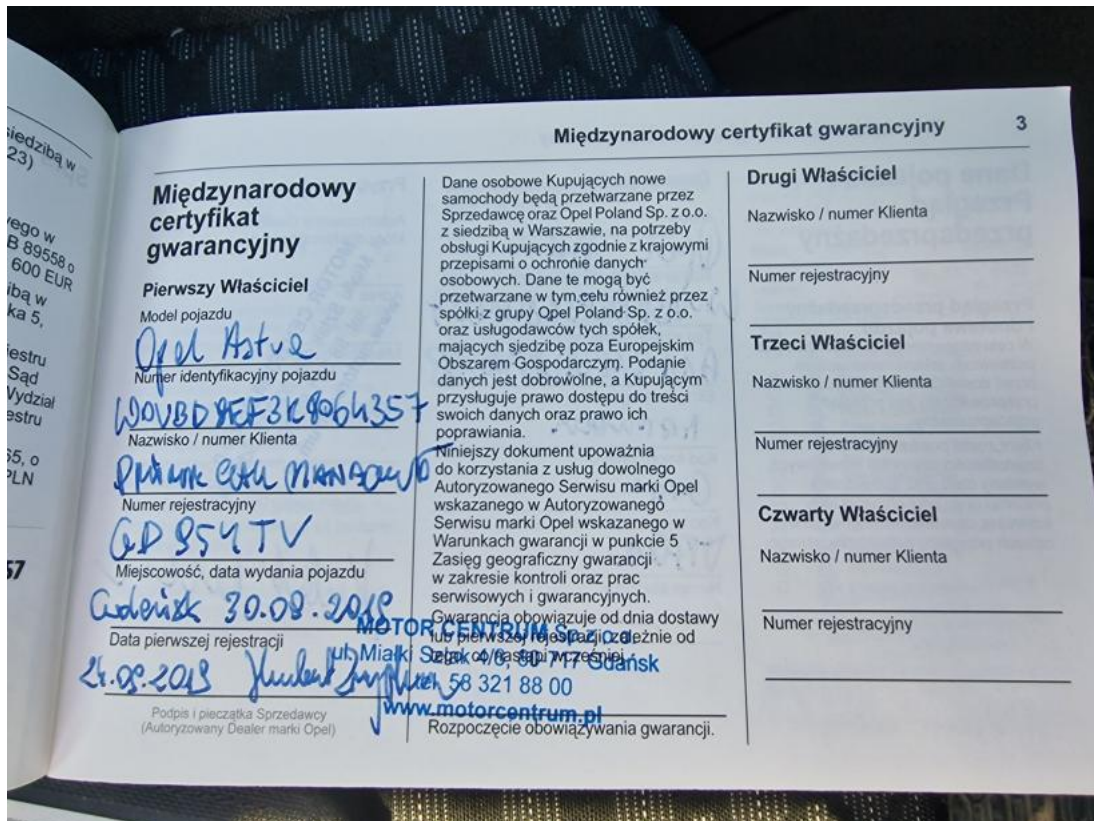 siedzibą w
23)
ego w
B 89558 o
600 EUR
ibą w
ka 5,
estru
Sąd
Wydział
estru
65, o
PLN
57
Międzynarodowy certyfikat gwarancyjny 3
Międzynarodowy
certyfikat
gwarancyjny
Pierwszy Właściciel
Model pojazdu
Opel Astra
Numer identyfikacyjny pojazdu
Nazwisko / numer Klienta
Numer rejestracyjny
GD 954TV
Miejscowość, data wydania pojazdu
Gdańsk 30.08.2019
Data pierwszej rejestracji
Podpis i pieczątka Sprzedawcy
(Autoryzowany Dealer marki Opel)
Dane osobowe Kupujących nowe
samochody będą przetwarzane przez
Sprzedawcę oraz Opel Poland Sp. z o.o.
z siedzibą w Warszawie, na potrzeby
obsługi Kupujących zgodnie z krajowymi
przepisami o ochronie danych
osobowych. Dane te mogą być
przetwarzane w tym celu również przez
spółki z grupy Opel Poland Sp. z o.o.
oraz usługodawców tych spółek,
mających siedzibę poza Europejskim
Obszarem Gospodarczym. Podanie
danych jest dobrowolne, a Kupującym
przysługuje prawo dostępu do treści
swoich danych oraz prawo ich
poprawiania.
Niniejszy dokument upoważnia
do korzystania z usług dowolnego
Autoryzowanego Serwisu marki Opel
wskazanego w Autoryzowanego
Serwisu marki Opel wskazanego w
Warunkach gwarancji w punkcie 5
Zasięg geograficzny gwarancji
w zakresie kontroli oraz prac
serwisowych i gwarancyjnych.
Gwarancja obowiązuje od dnia dostawy
lub pierwszej rejestracji, zależnie od
tego, co nastąpi wcześniej.
MOTOR CENTRUM Sp. z o.o.
ul. Miałki Szlak 4/8, 80-717 Gdańsk
tel. 58 321 88 00
www.motorcentrum.pl
Rozpoczęcie obowiązywania gwarancji.
Drugi Właściciel
Nazwisko / numer Klienta
Numer rejestracyjny
Trzeci Właściciel
Nazwisko / numer Klienta
Numer rejestracyjny
Czwarty Właściciel
Nazwisko / numer Klienta
Numer rejestracyjny